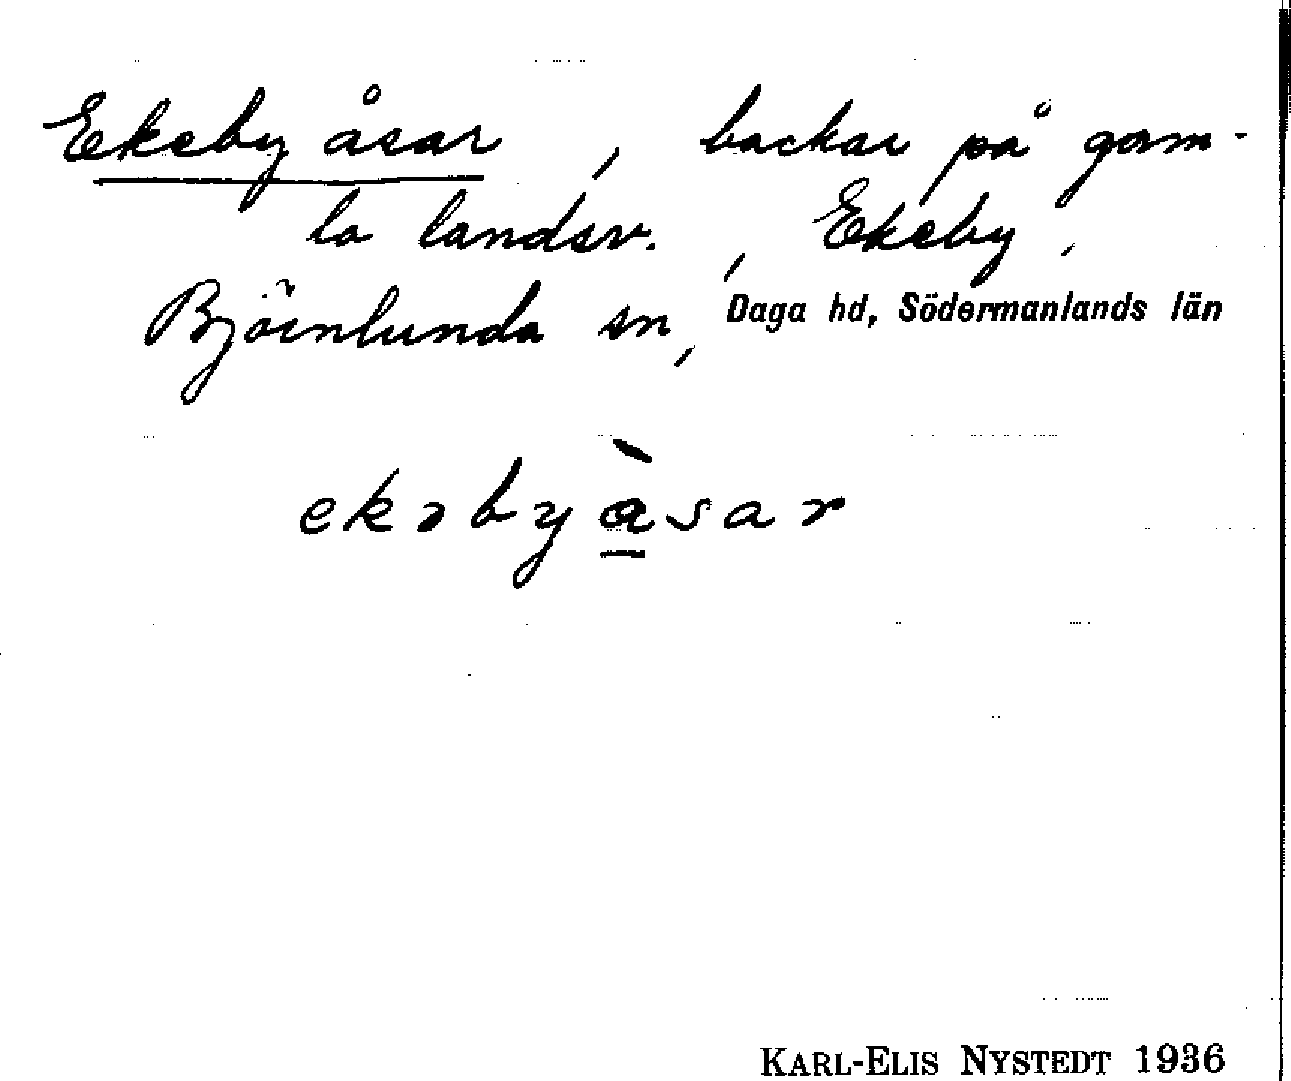 Ekeby åsar, backar på gam-
la landsv., Ekeby,
Björnlunda sn, Daga hd, Södermanlands län
ekəbyàsar
KARL-ELIS NYSTEDT 1936